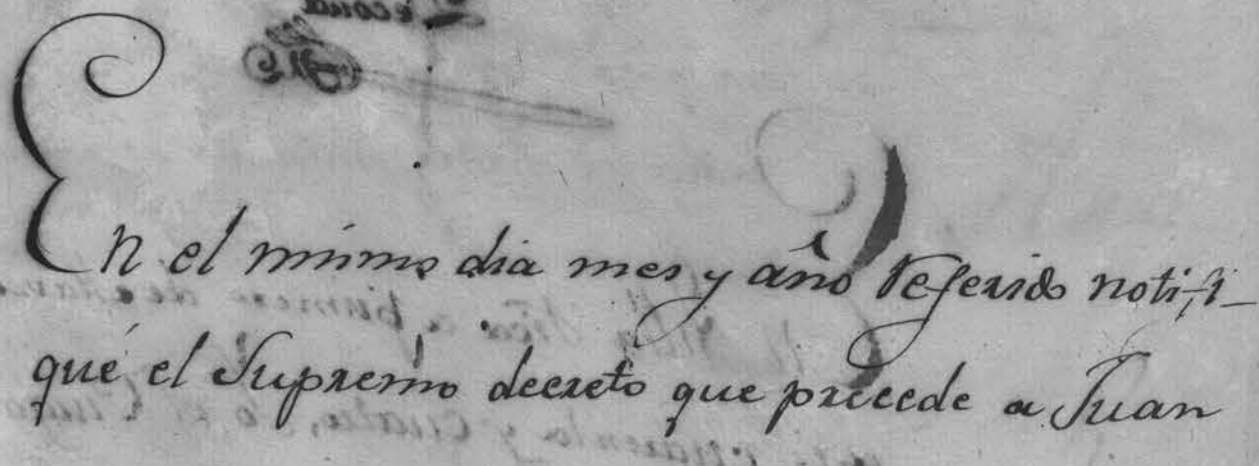 En el mismo dia mes y año referido notifi-
qué el Supremo decreto que precede a Juan